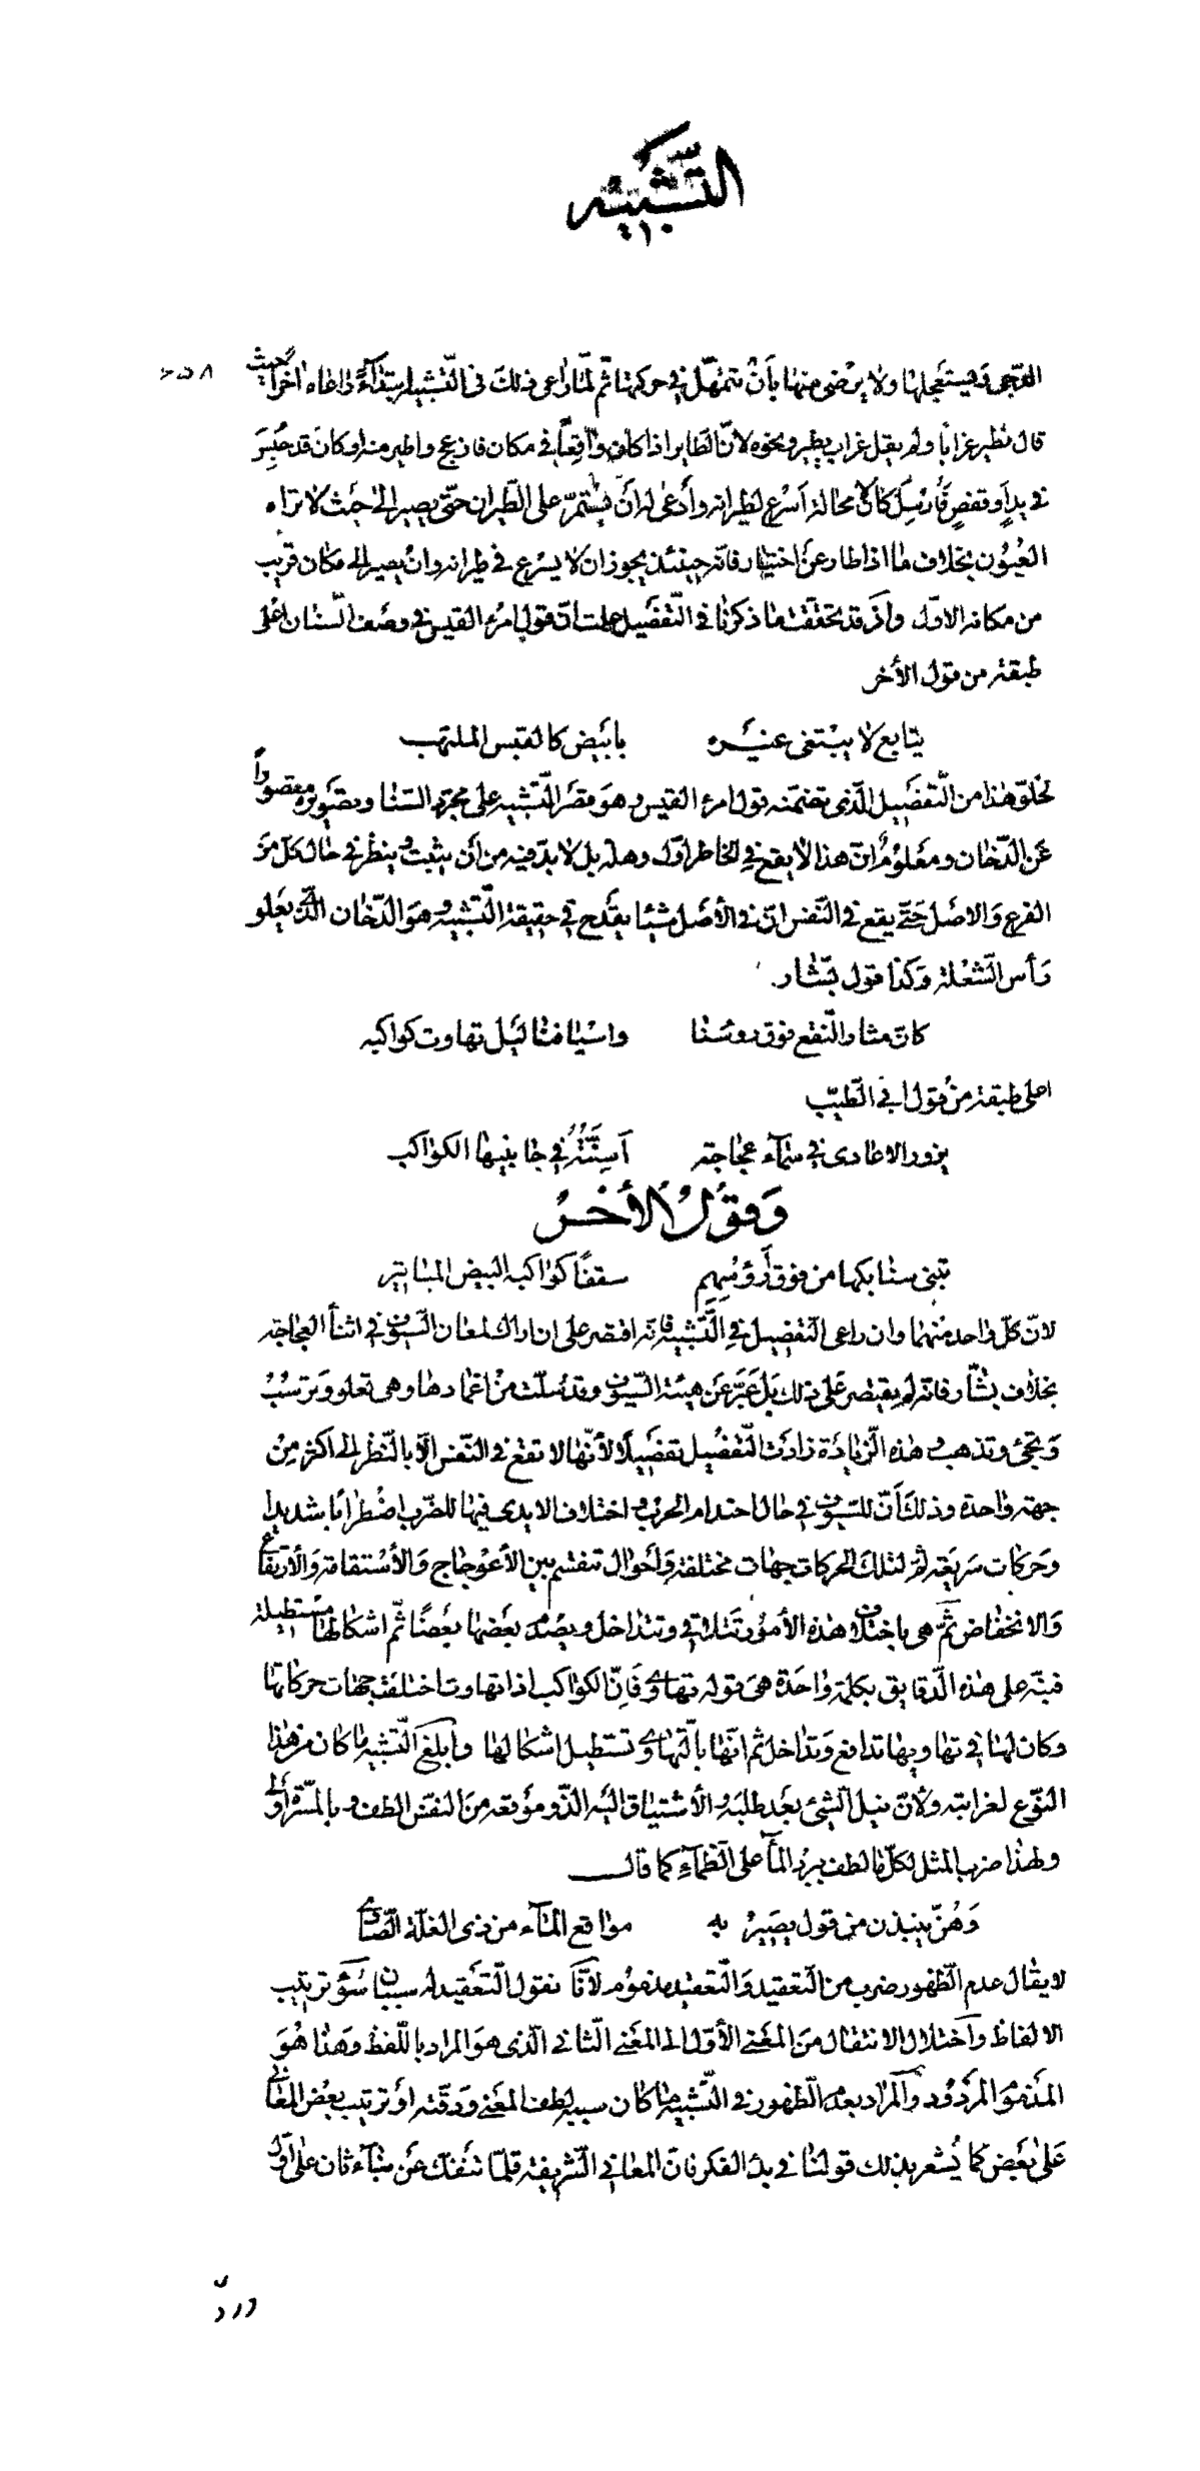 التشبيه
٢٥٨
الدجى ويستعجلها ولا يرضى منها بأن تتمهل في حركتها ثم لما راعى ذلك في التشبيه ابتداءً راعاه اخرا حيث
قال نطير غرابا ولم يقل غراب يطير ونحوه لانّ الطاير اذا كان واقعا في مكان فازعج واطير منه او كان قد حُبِسَ
في يدٍ او قفصٍ فأرسِل كان لا محالة اسرع لطيرانه وأدعى له أن يستمرّ على الطيران حتّى يصير الى حيث لا تراه
العيُون بخلاف ما اذا طار عن اختيار فانّه حينئذ يجوز ان لا يسرع في طيرانه وان يصير الى مكان قريب
من مكانه الاوّل واذ قد تحققت ما ذكرنا في التّفصيل علمت انّ قول امرء القيس في وصف السّنان اعلى
طبقة من قول الأخر
يتابع لا يبتغى غيره بابيض كالقبس الملتهب
لخلوّ هذا من التّفصيل الّذى تضمّنه قول امرء القيس وهو قصر التّشبيه على مجرّد السّنا وتصويره مقصوراً
عن الدّخان ومعلوم انّ هذا لا يقع في الخاطر اوّل وهلة بل لا بدّ فيه من أن يتثبت وينظر في حال كلّ من
الفرع والاصل حتّى يقع في النّفس انّ في الأصل شيئا يقدح في حقيقة التّشبيه وهو الدّخان الّذى يعلو
رأس الشّعلة وكذا قول بشّار
كانّ مثار النّقع فوق رؤسنا واسيافنا ليل تهاوت كواكبه
اعلى طبقة من قول ابى الطّيّب
يزور الاعادى في سماء عجاجة أسنّته في جانبيها الكواكب
وقول الأخر
تبنى سنابكها من فوق أرؤسهم سقفًا كواكبه البيض المباتير
لانّ كلّ واحد منهما وان راعى التفصيل في التّشبيه فانّه اقتصر على ان اراك لمعان السّيوف في اثناء العجاجة
بخلاف بشّار فانّه لم يقتصر على ذلك بل عبّر عن هيئة السّيوف وقد سلّت من اغمادها وهى تعلو وترسب
وتجئ وتذهب وهذه الزّيادة زادت التّفصيل تفصيلا لأنّها لا تقع في النّفس الّا بالنّظر الى اكثر من
جهة واحدة وذلك أنّ للسّيوف في حال احتدام الحرب واختلاف الايدى فيها للضّرب اضطرابًا شديدا
وحركات سريعة ثمّ لتلك الحركات جهات مختلفة واحوال تنقسم بين الأعوجاج والأستقامة والأرتفاع
والانخفاض ثمّ هى باختلاف هذه الأمور تتلاقى وتتداخل ويصدم بعضها بعضًا ثمّ اشكالها مستطيلة
فنبّه على هذه الدّقايق بكلمة واحدة هى قوله تهاوى فانّ الكواكب اذا تهاوت اختلفت جهات حركاتها
وكان لها في تهاويها تدافع وتداخل ثم انّها بالتّهاوى تستطيل اشكالها وأبلغ التّشبيه ما كان من هذا
النّوع لغرابته ولأنّ نيل الشّئ بعد طلبه والأشتياق اليه الذّ وموقعه من النّفس الطف وبالمسرّة اولى
ولهذا ضرب المثل لكلّ ما لطف ببرد الماء على الظّماء كما قال
وهُنّ ينبذن من قول يصبن به مواقع الماء من ذى الغلّة الصّادى
لا يقال عدم الظّهور ضرب من التعقيد والتّعقيد مذموم لانّا نقول التّعقيد له سببان سوء ترتيب
الالفاظ واختلال الانتقال من المعنى الأوّل الى المعنى الثّانى الّذى هو المراد باللّفظ وهذا هو
المذموم المردود والمراد بعدم الظّهور في التّشبيه ما كان سببه لطف المعنى ودقّته او ترتيب بعض المعانى
على بعض كما يُشعر بذلك قولنا في بدء الفكر فانّ المعانى الشّريفة قلّما تنفكّ عن بناء ثان على اوّل